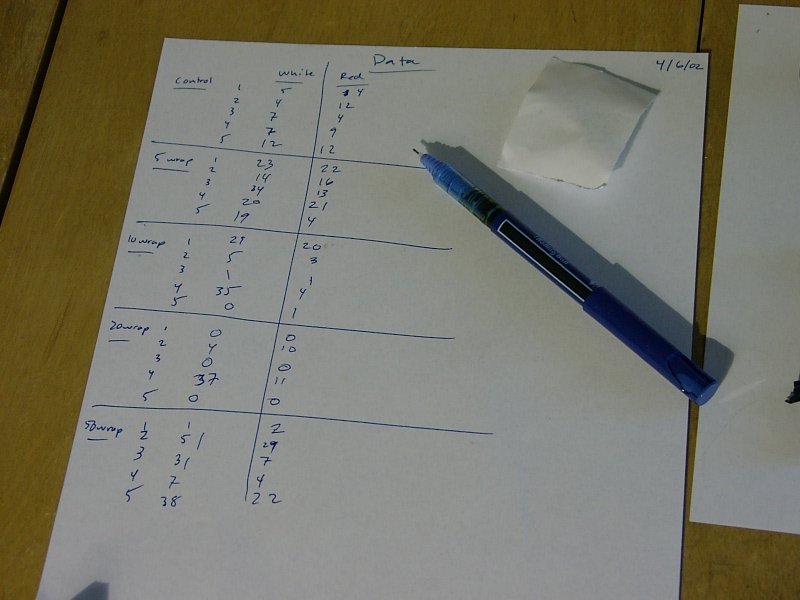 Data
4/6/02
White Red
Control 1 5 4
2 4 12
3 7 4
4 7 9
5 12 12
5 wrap 1 23 22
2 14 16
3 34 13
4 20 21
5 19 4
10 wrap 1 21 20
2 5 3
3 1 1
4 35 4
5 0 1
20 wrap 1 0 0
2 4 10
3 0 0
4 37 11
5 0 0
50 wrap 1 1 2
2 51 29
3 31 7
4 7 4
5 38 22